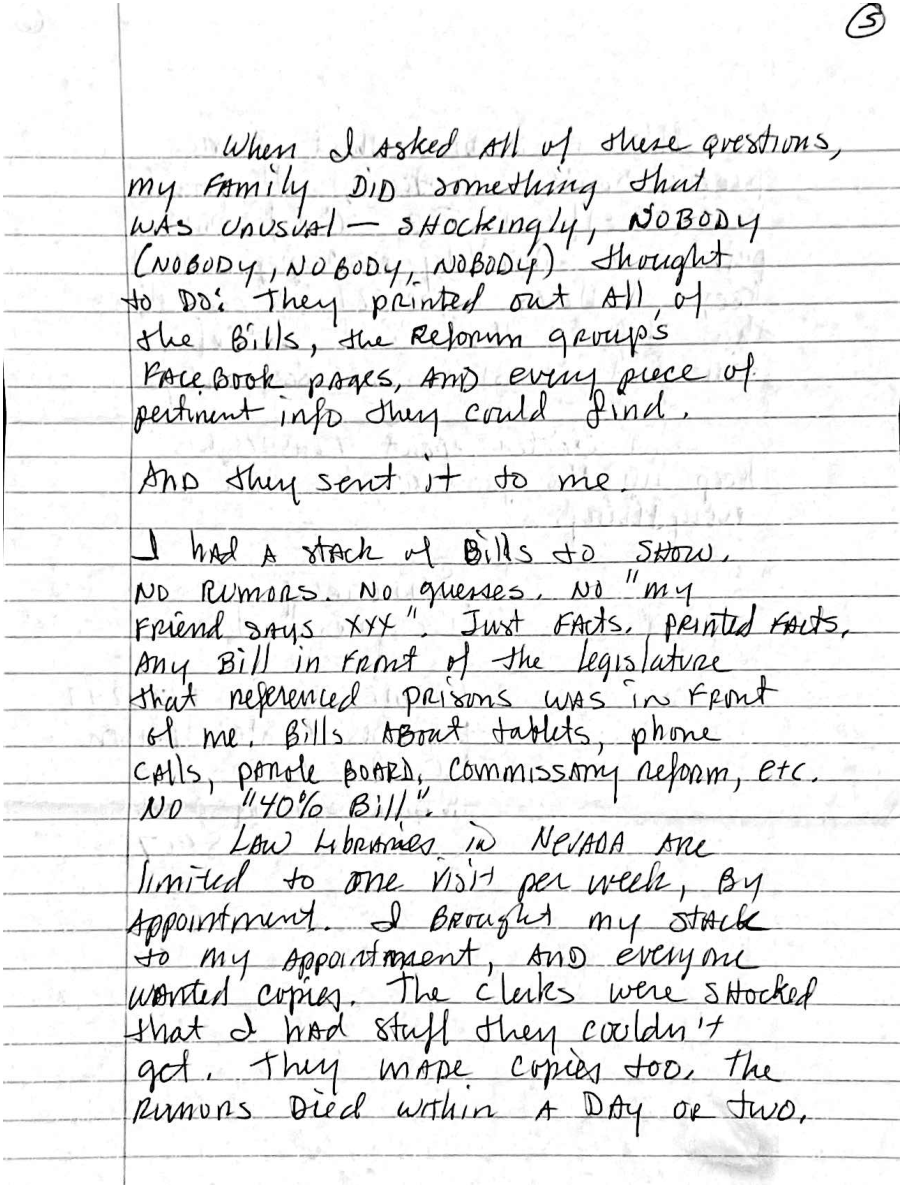 5
When I asked all of these questions,
my family did something that
was unusual — shockingly, NOBODY
(NOBODY, NOBODY, NOBODY) thought
to do: They printed out all of
the Bills, the Reform group's
FaceBook pages, and every piece of
pertinent info they could find.
And they sent it to me.
I had a stack of Bills to show.
No rumors. No guesses. No "my
friend says XYX". Just facts. printed facts.
Any Bill in front of the legislature
that referenced prisons was in front
of me. Bills about tablets, phone
calls, parole board, commissary reform, etc.
No "40% Bill".
Law Libraries in Nevada are
limited to one visit per week, by
appointment. I brought my stack
to my appointment, and everyone
wanted copies. The clerks were shocked
that I had stuff they couldn't
get. They made copies too. The
rumors died within a day or two.